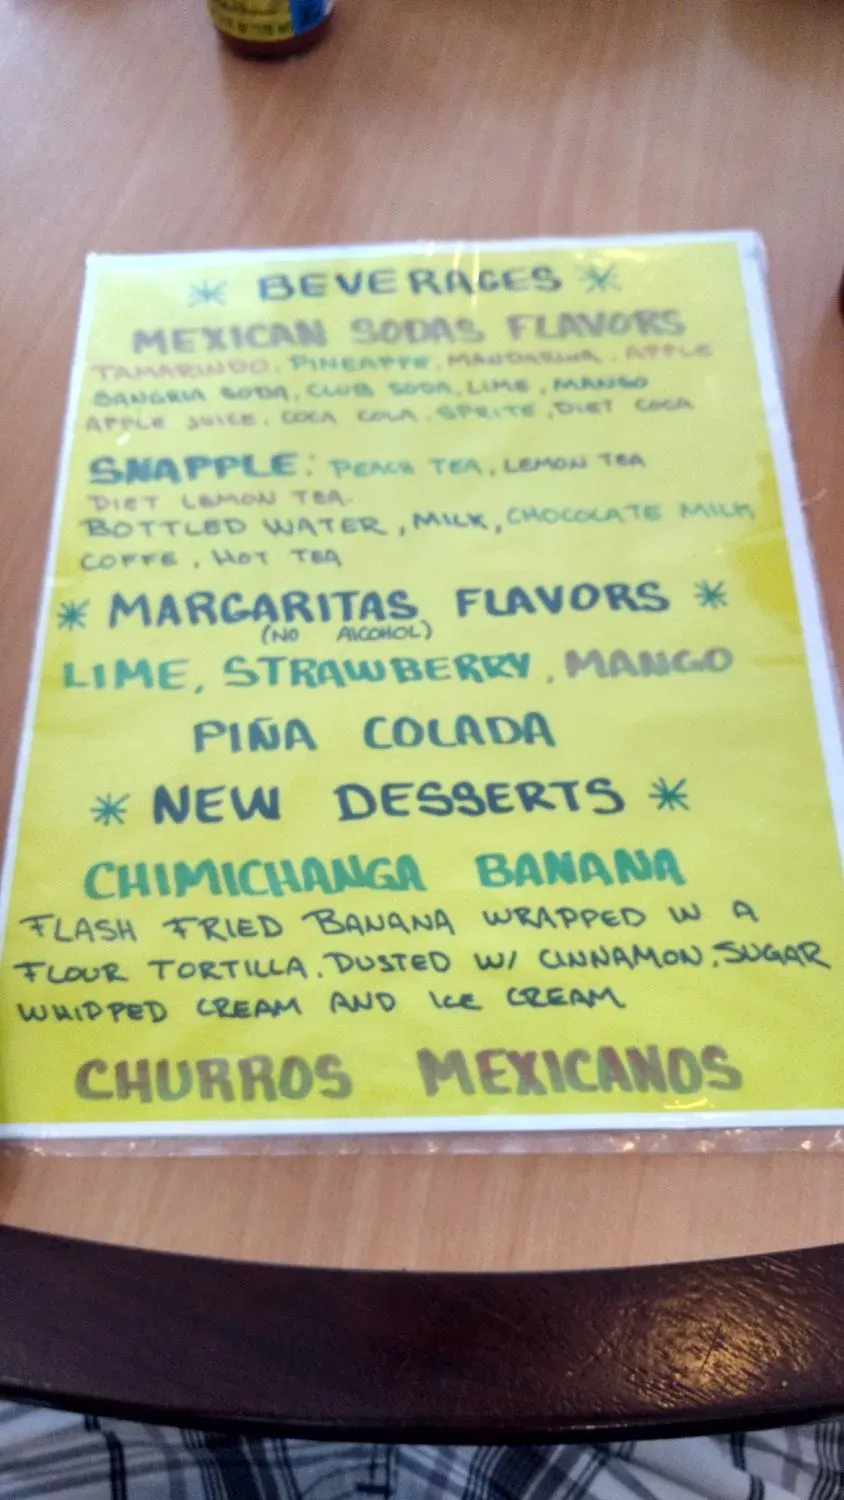 * BEVERAGES *
MEXICAN SODAS FLAVORS
TAMARINDO, PINEAPPE, MANDARINA, APPLE
SANGRIA SODA, CLUB SODA, LIME, MANGO
APPLE JUICE, COCA COLA, SPRITE, DIET COCA
SNAPPLE: PEACH TEA, LEMON TEA
DIET LEMON TEA.
BOTTLED WATER, MILK, CHOCOLATE MILK
COFFE, HOT TEA
* MARGARITAS FLAVORS *
(NO ALCOHOL)
LIME, STRAWBERRY, MANGO
PIÑA COLADA
* NEW DESSERTS *
CHIMICHANGA BANANA
FLASH FRIED BANANA WRAPPED IN A
FLOUR TORTILLA. DUSTED W/ CINNAMON, SUGAR
WHIPPED CREAM AND ICE CREAM
CHURROS MEXICANOS